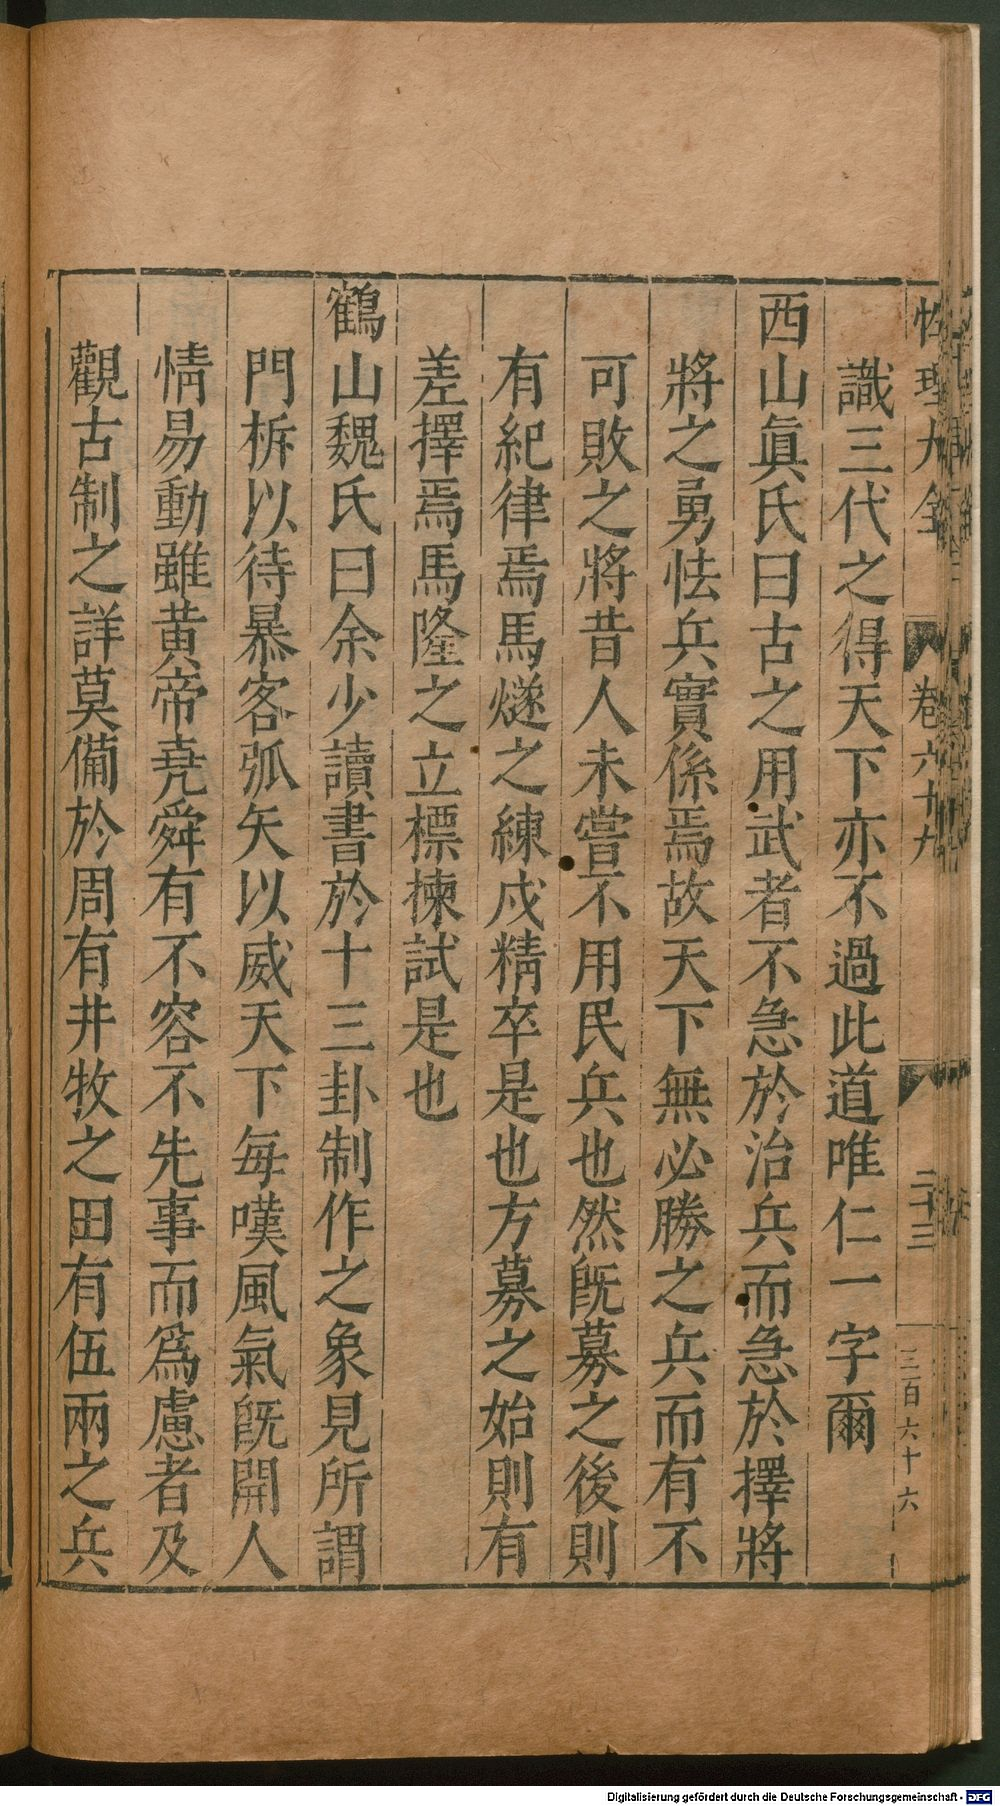 性理大全
卷六十九
二十三
三百六十六
識三代之得天下亦不過此道唯仁一字爾
西山眞氏曰古之用武者不急於治兵而急於擇將
將之勇怯兵實係焉故天下無必勝之兵而有不
可敗之將昔人未嘗不用民兵也然旣募之後則
有紀律焉馬燧之練成精卒是也方募之始則有
差擇焉馬隆之立標揀試是也
鶴山魏氏曰余少讀書於十三卦制作之象見所謂
門柝以待暴客弧矢以威天下每嘆風氣旣開人
情易動雖黃帝堯舜有不容不先事而爲慮者及
觀古制之詳莫備於周有井牧之田有伍兩之兵
Digitalisierung gefördert durch die Deutsche Forschungsgemeinschaft - DFG